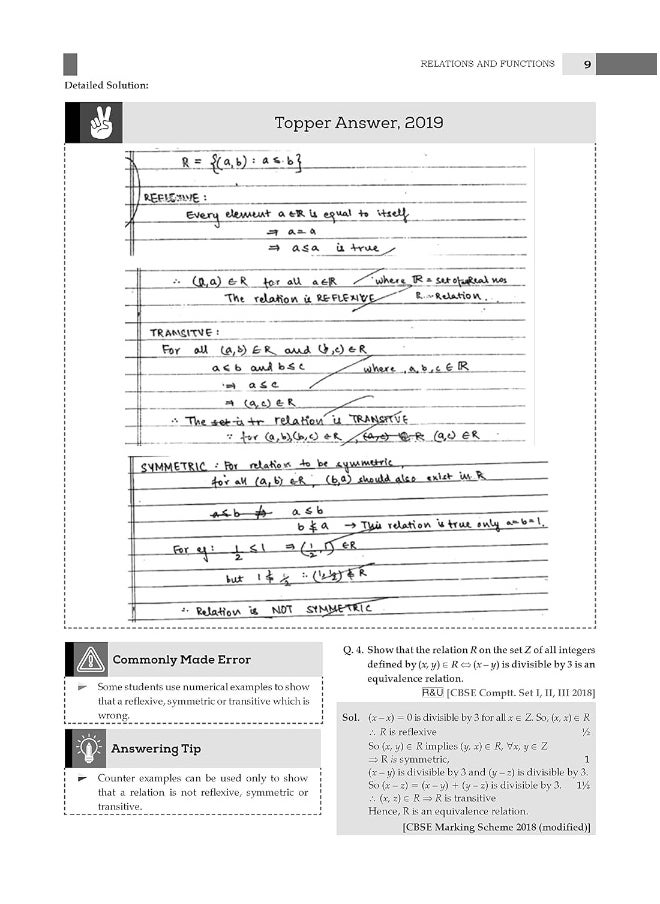 RELATIONS AND FUNCTIONS 9
Detailed Solution:
Topper Answer, 2019
R = {(a,b) : a ≤ b}
REFLEXIVE :
Every element a ∈ R is equal to itself
⇒ a = a
⇒ a ≤ a is true
∴ (a,a) ∈ R for all a ∈ R where ℝ = set of Real nos
The relation is REFLEXIVE R → Relation.
TRANSITVE :
For all (a,b) ∈ R and (b,c) ∈ R
a ≤ b and b ≤ c where, a, b, c ∈ ℝ
⇒ a ≤ c
⇒ (a,c) ∈ R
∴ The set is tr relation is TRANSITIVE
∵ for (a,b)(b,c) ∈ R, (a,c) ∈ R (a,c) ∈ R
SYMMETRIC : For relation to be symmetric,
for all (a,b) ∈ R, (b,a) should also exist in R
a ≤ b ⇏ a ≤ b
b ≰ a → This relation is true only a=b=1.
For eg: 1/2 ≤ 1 ⇒ (1/2, 1) ∈ R
but 1 ≰ 1/2 ∴ (1, 1/2) ∉ R
∴ Relation is NOT SYMMETRIC
Commonly Made Error
Some students use numerical examples to show
that a reflexive, symmetric or transitive which is
wrong.
Answering Tip
Counter examples can be used only to show
that a relation is not reflexive, symmetric or
transitive.
Q. 4. Show that the relation R on the set Z of all integers
defined by (x, y) ∈ R ⇔ (x – y) is divisible by 3 is an
equivalence relation.
R&U [CBSE Comptt. Set I, II, III 2018]
Sol. (x – x) = 0 is divisible by 3 for all x ∈ Z. So, (x, x) ∈ R
∴ R is reflexive ½
So (x, y) ∈ R implies (y, x) ∈ R, ∀x, y ∈ Z
⇒ R is symmetric, 1
(x – y) is divisible by 3 and (y – z) is divisible by 3.
So (x – z) = (x – y) + (y – z) is divisible by 3. 1½
∴ (x, z) ∈ R ⇒ R is transitive
Hence, R is an equivalence relation.
[CBSE Marking Scheme 2018 (modified)]